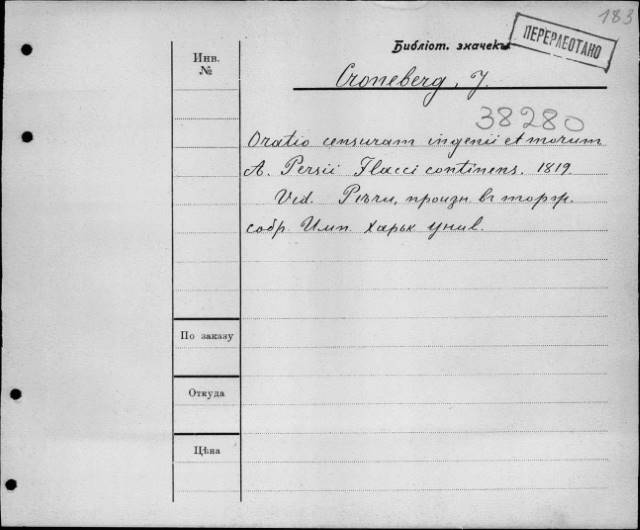 183
Библіот. значекъ
ПЕРЕРАБОТАНО
Инв.
№
Croneberg, J.
38280
Oratio censuram ingenii et morum
A. Persii Flacci continens. 1819
Vid. Рѣчи, произн. въ торж.
собр. Имп. Харьк унив.
По заказу
Откуда
Цѣна